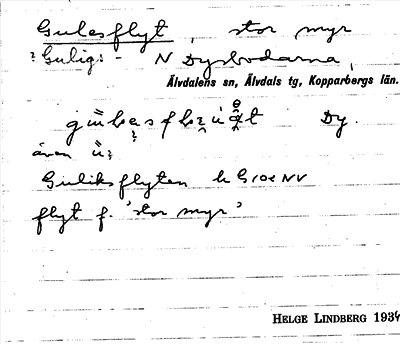 Gulesflyt, stor myr
? Gulig: - N Dysbodarna,
Älvdalens sn, Älvdals tg, Kopparbergs län.
Dy.
även
Guliksflyten k G10e NV
flyt f. 'stor myr'
HELGE LINDBERG 1934